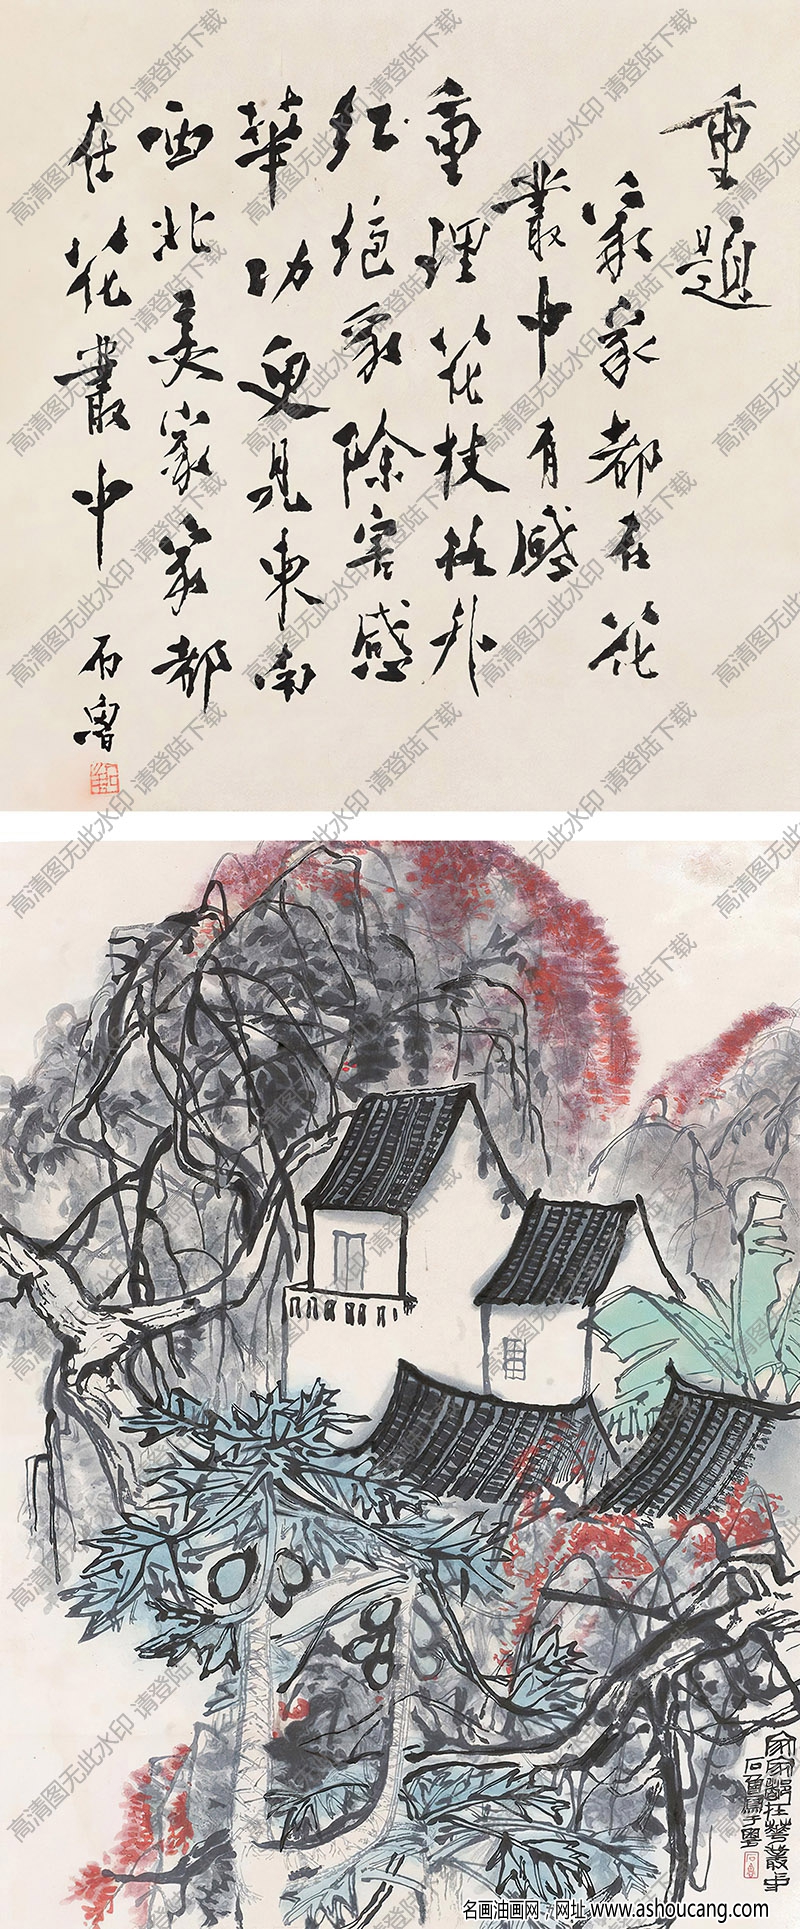 重題
家家都在花
叢中有感
重理花枝格外
红绝除害感
華功更見東南
西北美家家都
在花叢中 石魯
家家都在華叢中
石魯寫于粵
石魯
高清图无此水印 请登陆下载
名画油画网，网址 www.ashoucang.com